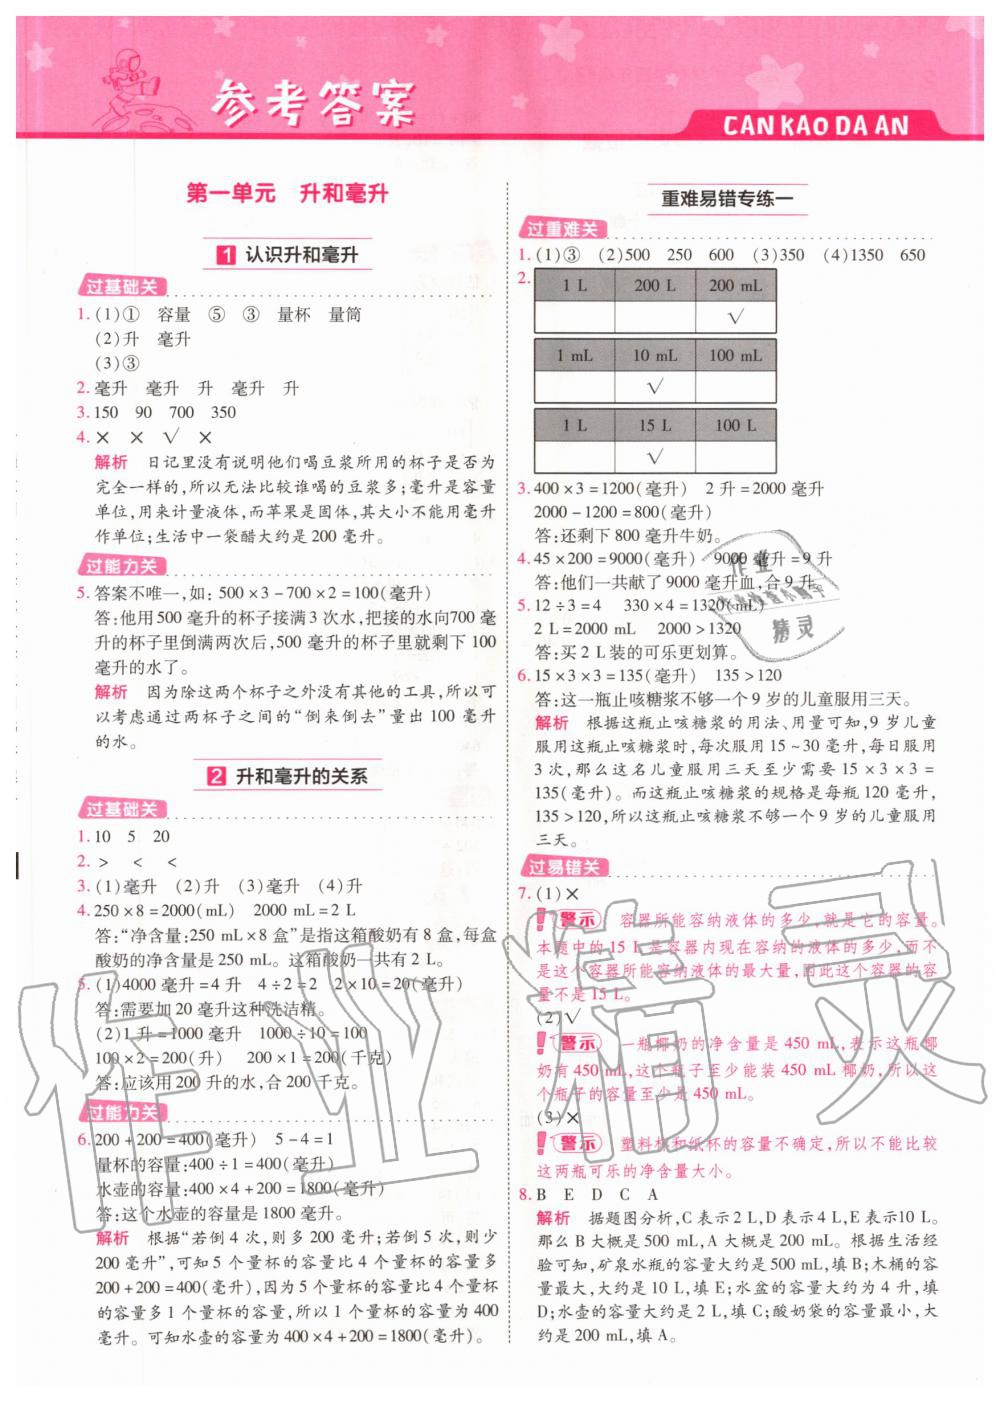 参考答案
CAN KAO DA AN
第一单元 升和毫升
1 认识升和毫升
过基础关
1.(1)① 容量 ⑤ ③ 量杯 量筒
(2)升 毫升
(3)③
2.毫升 毫升 升 毫升 升
3.150 90 700 350
4.× × √ ×
解析 日记里没有说明他们喝豆浆所用的杯子是否为
完全一样的,所以无法比较谁喝的豆浆多;毫升是容量
单位,用来计量液体,而苹果是固体,其大小不能用毫升
作单位;生活中一袋醋大约是 200 毫升。
过能力关
5.答案不唯一,如:500×3-700×2=100(毫升)
答:他用 500 毫升的杯子接满 3 次水,把接的水向700 毫
升的杯子里倒满两次后,500 毫升的杯子里就剩下 100
毫升的水了。
解析 因为除这两个杯子之外没有其他的工具,所以可
以考虑通过两杯子之间的“倒来倒去”量出 100 毫升
的水。
2 升和毫升的关系
过基础关
1.10 5 20
2.> < <
3.(1)毫升 (2)升 (3)毫升 (4)升
4.250×8=2000(mL) 2000 mL=2 L
答:“净含量:250 mL×8 盒”是指这箱酸奶有 8 盒,每盒
酸奶的净含量是 250 mL。这箱酸奶一共有 2 L。
5.(1)4000 毫升=4 升 4÷2=2 2×10=20(毫升)
答:需要加 20 毫升这种洗洁精。
(2)1 升=1000 毫升 1000÷10=100
100×2=200(升) 200×1=200(千克)
答:应该用 200 升的水,合 200 千克。
过能力关
6.200+200=400(毫升) 5-4=1
量杯的容量:400÷1=400(毫升)
水壶的容量:400×4+200=1800(毫升)
答:这个水壶的容量是 1800 毫升。
解析 根据“若倒 4 次,则多 200 毫升;若倒 5 次,则少
200 毫升”,可知 5 个量杯的容量比 4 个量杯的容量多
200+200=400(毫升),因为 5 个量杯的容量比 4 个量杯
的容量多 1 个量杯的容量,所以 1 个量杯的容量为 400
毫升。可知水壶的容量为 400×4+200=1800(毫升)。
重难易错专练一
过重难关
1.(1)③ (2)500 250 600 (3)350 (4)1350 650
2.
1 L 200 L 200 mL
√
1 mL 10 mL 100 mL
√
1 L 15 L 100 L
√
3.400×3=1200(毫升) 2 升=2000 毫升
2000-1200=800(毫升)
答:还剩下 800 毫升牛奶。
4.45×200=9000(毫升) 9000 毫升=9 升
答:他们一共献了 9000 毫升血,合 9 升。
5.12÷3=4 330×4=1320(mL)
2 L=2000 mL 2000>1320
答:买 2 L 装的可乐更划算。
6.15×3×3=135(毫升) 135>120
答:这一瓶止咳糖浆不够一个 9 岁的儿童服用三天。
解析 根据这瓶止咳糖浆的用法、用量可知,9 岁儿童
服用这瓶止咳糖浆时,每次服用 15~30 毫升,每日服用
3 次,那么这名儿童服用三天至少需要 15×3×3=
135(毫升)。而这瓶止咳糖浆的规格是每瓶 120 毫升,
135>120,所以这瓶止咳糖浆不够一个 9 岁的儿童服用
三天。
过易错关
7.(1)×
警示 容器所能容纳液体的多少,就是它的容量。
本题中的 15 L 是容器内现在容纳的液体的多少,而不
是这个容器所能容纳液体的最大量,因此这个容器的容
量不是 15 L。
(2)√
警示 一瓶椰奶的净含量是 450 mL,表示这瓶椰
奶有 450 mL,这个瓶子至少能装 450 mL 椰奶,所以这
个瓶子的容量至少是 450 mL。
(3)×
警示 塑料杯和纸杯的容量不确定,所以不能比较
这两瓶可乐的净含量大小。
8.B E D C A
解析 据题图分析,C 表示 2 L,D 表示 4 L,E 表示10 L。
那么 B 大概是 500 mL,A 大概是 200 mL。根据生活经
验可知,矿泉水瓶的容量大约是 500 mL,填 B;木桶的容
量最大,大约是 10 L,填 E;水盆的容量大约为 4 升,填
D;水壶的容量大约是 2 L,填 C;酸奶袋的容量最小,大
约是 200 mL,填 A。
作业精灵